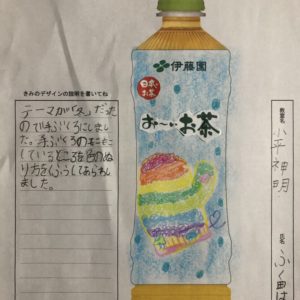 きみのデザインの説明を書いてね
テーマが「冬」だった
ので手ぶくろにしまし
た。手ぶくろのもこもこ
しているところを色のぬ
り方をくふうしてあらわし
ました。
伊藤園
お〜いお茶
教室名
小平神明
氏名